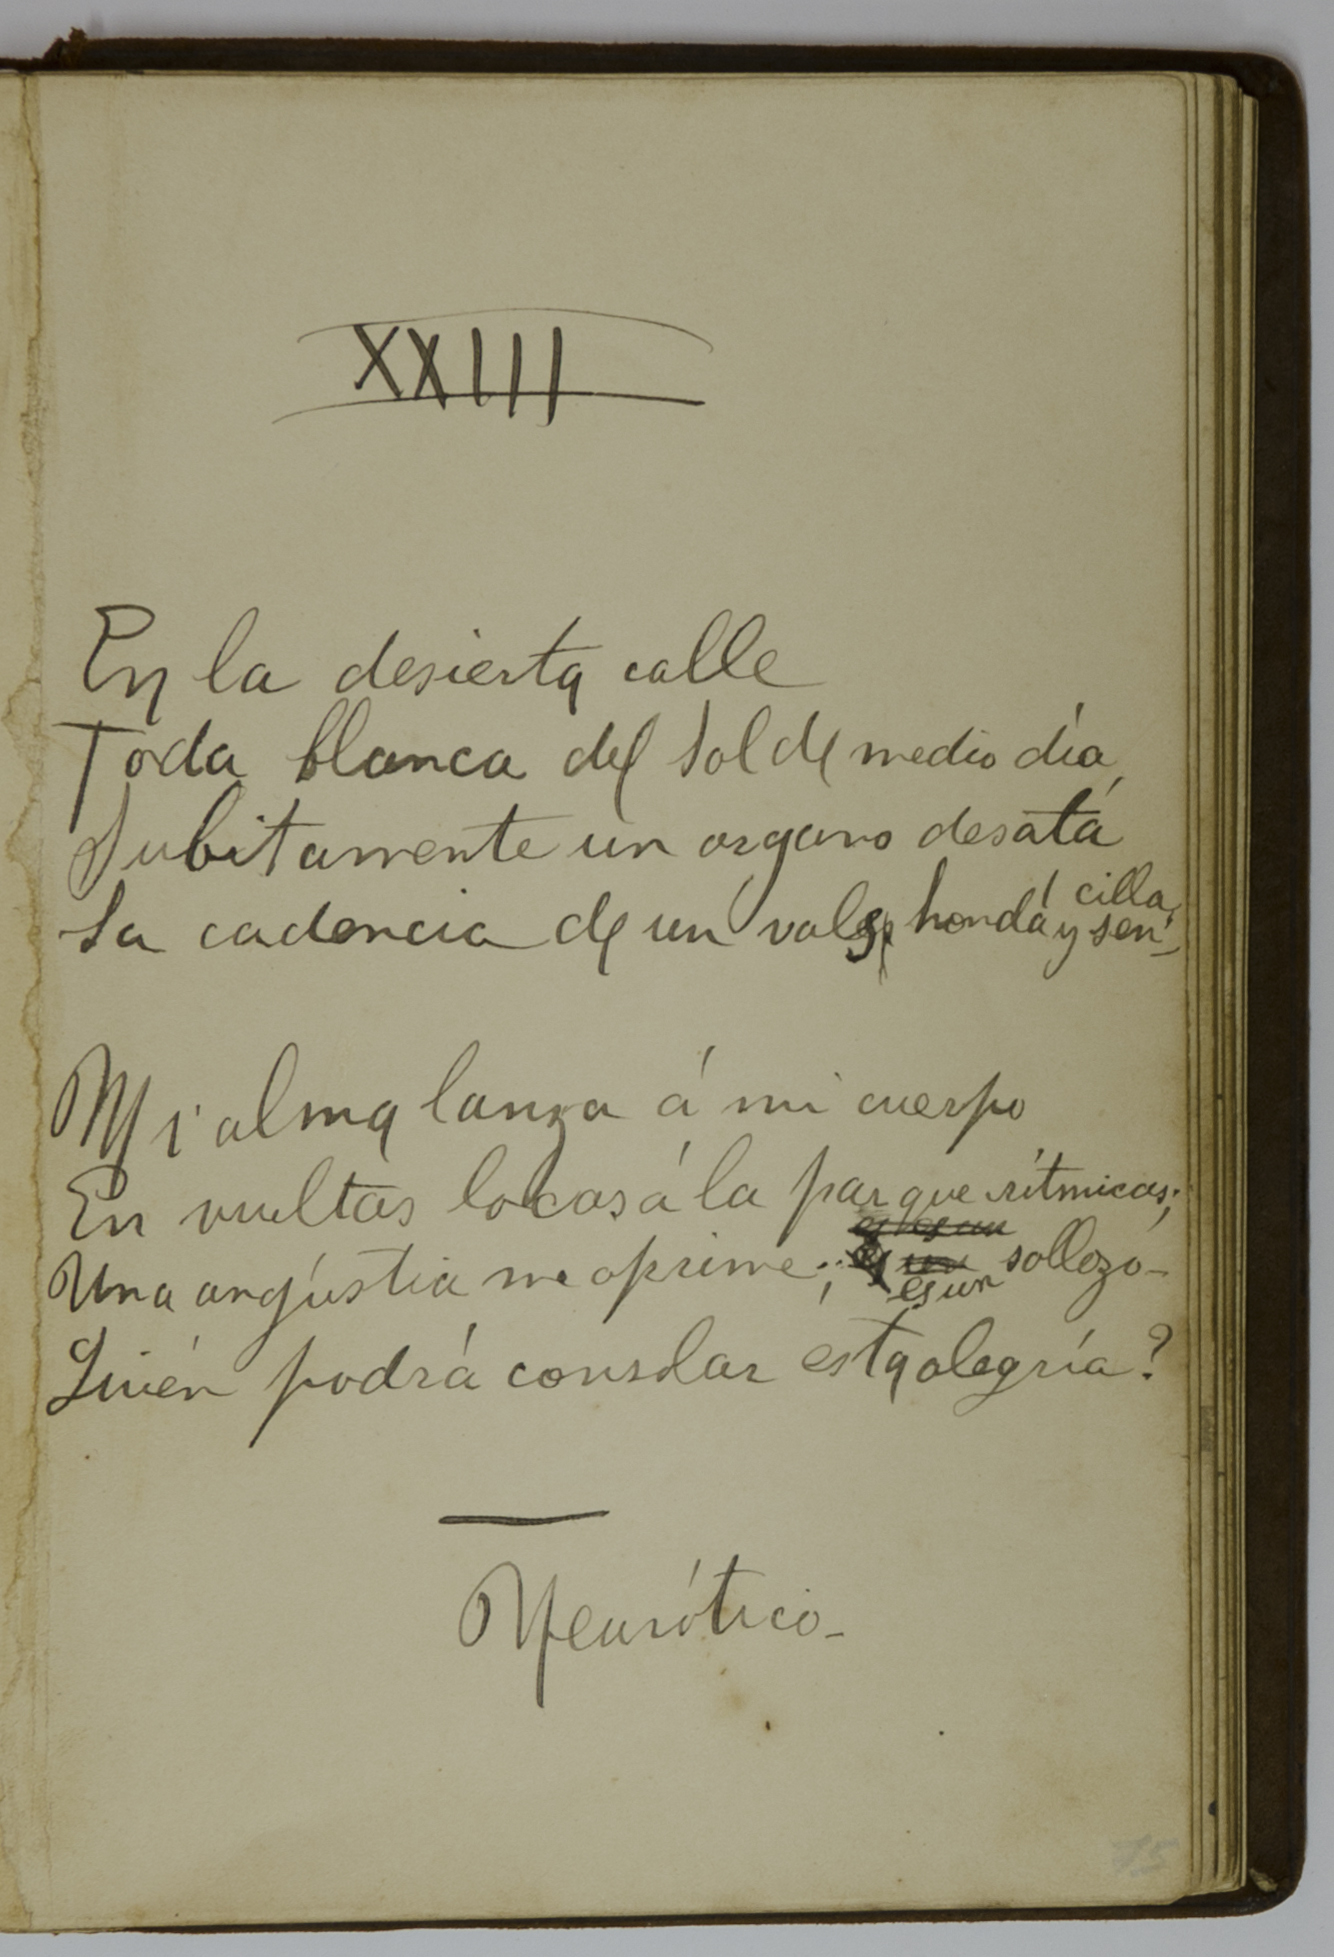 XXIII
En la desierta calle
Toda blanca del sol de medio día,
Subitamente un órgano desata
La cadencia de un vals, honda y sencilla,
Mi alma lanza á mi cuerpo
En vueltas locas á la par que rítmicas;
Una angústia me oprime; es un sollozo-
Quién podrá consolar esta alegría?
Neurótico-
75